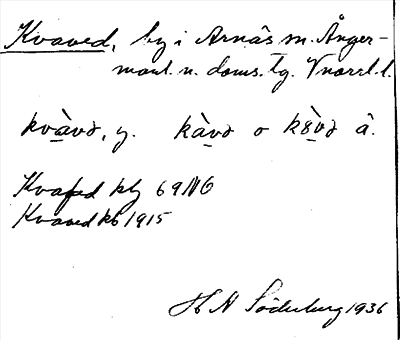 Kvaved, by i Arnäs sn. Ånger-
manl. n. doms. tg. Vnorrl. l.
kvàvə, y. kàvə o kšvə ä.
Kvafved kbg 69 NO
Kvaved kb 1915
H N Söderberg 1936